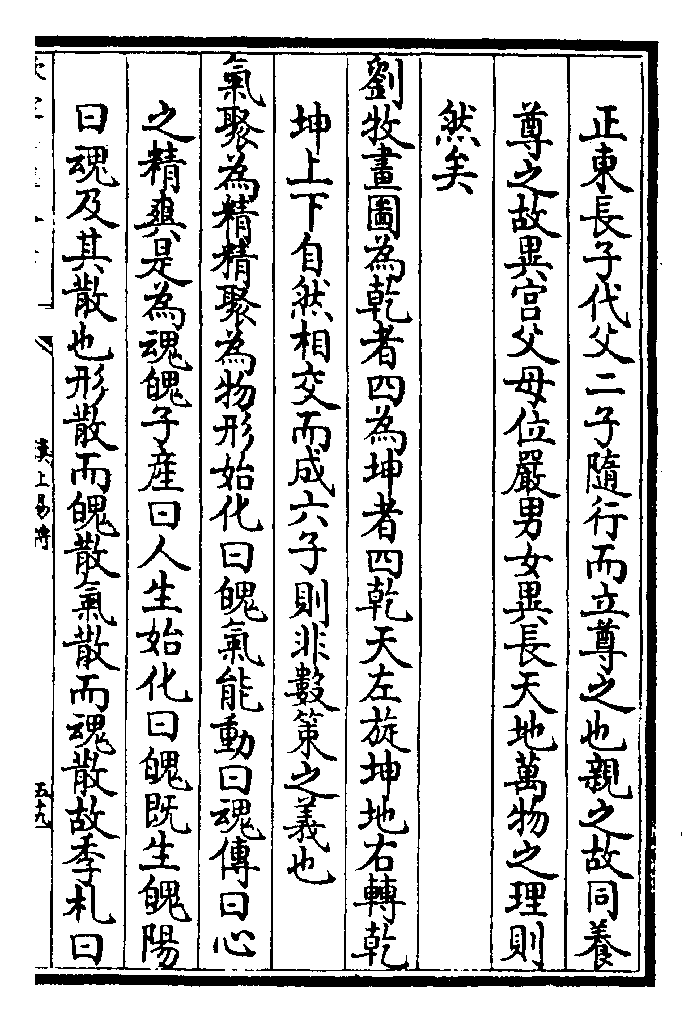 正東長子代父二子隨行而立尊之也親之故同養
尊之故異宫父母位嚴男女異長天地萬物之理則
然矣
劉牧畫圖為乾者四為坤者四乾天左旋坤地右轉乾
坤上下自然相交而成六子則非數策之義也
氣聚為精精聚為物形始化曰魄氣能動曰魂傳曰心
之精爽是為魂魄子産曰人生始化曰魄既生魄陽
曰魂及其散也形散而魄散氣散而魂散故季札曰
漢上易傳
五十九